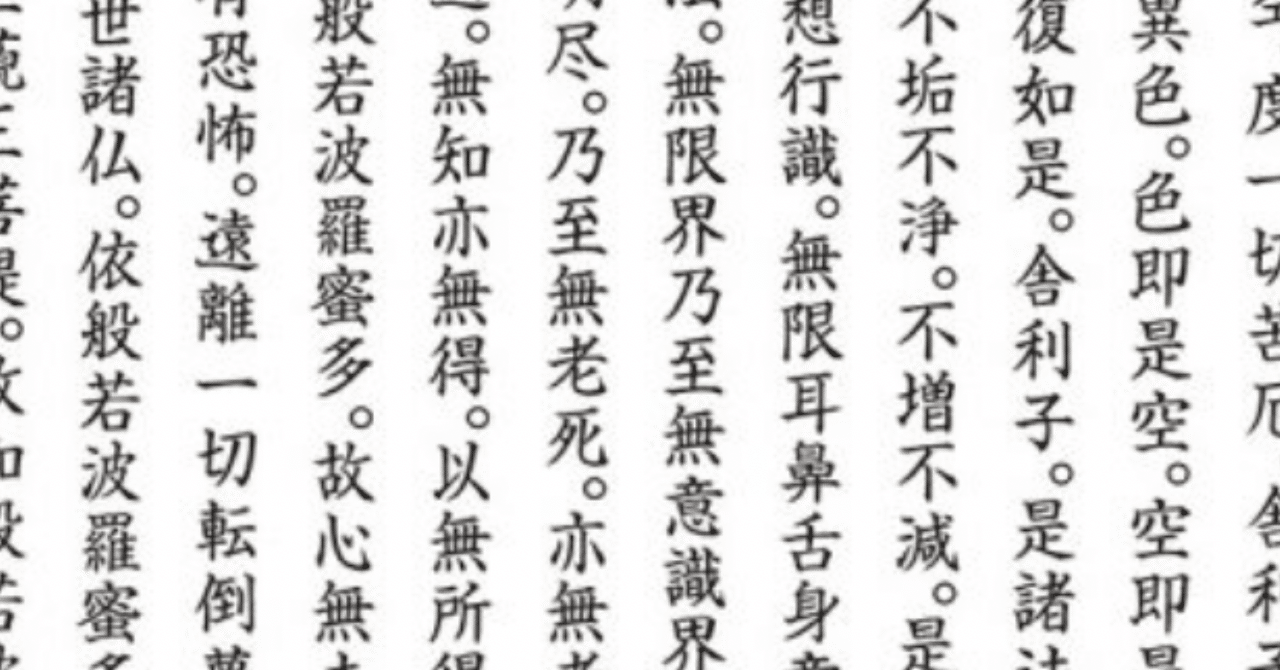 度一切苦厄舎利
異色。色即是空。空即是
復如是。舎利子。是諸法
不垢不浄。不増不減。是
想行識。無限耳鼻舌身意
法。無限界乃至無意識界
尽。乃至無老死。亦無老
。無知亦無得。以無所得
般若波羅蜜多。故心無
有恐怖。遠離一切転倒夢
世諸仏。依般若波羅蜜多
藐三菩提。故知般若